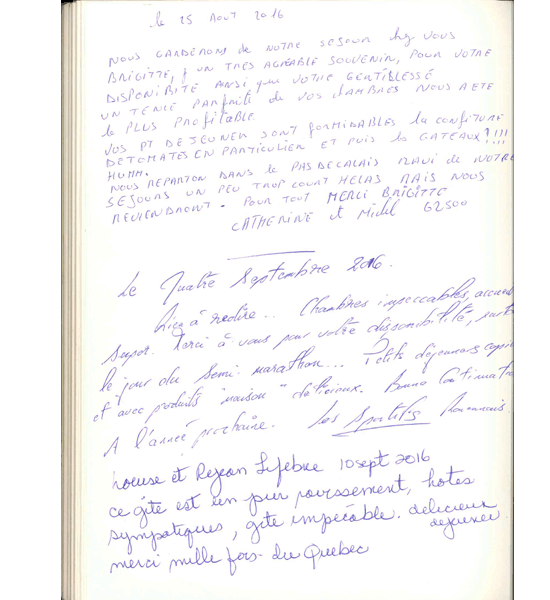 le 25 Aout 2016
NOUS GARDERONS de NOTRE SEJOUR chez VOUS
BRIGITTE, UN TRES AGREABLE SOUVENIR, POUR VOTRE
DISPONIBITE AINSI que VOTRE GENTILLESSE
UN TENUE PARFAITE de VOS CHAMBRES NOUS A ETE
le PLUS PROFITABLE
VOS PT DEJEUNER SONT FORMIDABLES la CONFITURE
DE TOMATES EN PARTICULIER ET PUIS les GATEAUX!!!!
HUMM.
NOUS REPARTON DANS le PAS DE CALAIS RAVI de NOTRE
SEJOURS UN PEU TROP COURT HELAS MAIS NOUS
REVIENDRONT. POUR TOUT MERCI BRIGITTE
CATHERINE et Michel 62500
Le Quatre Septembre 2016.
Rien à redire... Chambres impeccables, accueil
super. Merci à vous pour votre disponibilité, surtout
le jour du Semi-marathon... Petits déjeuners
et avec produits "maison" délicieux. Bonne Continuation
A l'année prochaine. Les Sportifs Rennais.
Louise et Rejean Lefebvre 10 sept 2016
ce gîte est un pur ravissement, hotes
sympatiques, gîte impécable. délicieux
dejeuner
merci mille fois - du Quebec